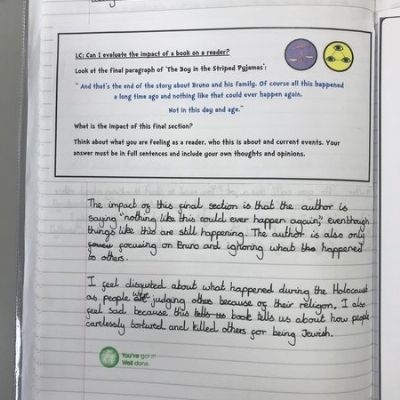 LC: Can I evaluate the impact of a book on a reader?
Look at the final paragraph of 'The Boy in the Striped Pyjamas':
"And that's the end of the story about Bruno and his family. Of course all this happened
a long time ago and nothing like that could ever happen again.
Not in this day and age."
What is the impact of this final section?
Think about what you are feeling as a reader, who this is about and current events. Your
answer must be in full sentences and include your own thoughts and opinions.
The impact of this final section is that the author is
saying "nothing like this could ever happen again," eventhough
things like this are still happening. The author is also only
focusing on Bruno and ignoring what happened
to others.
I feel disgusted about what happened during the Holocaust
as people were judging others because of their religion. I also
feel sad because this book tells us about how people
carelessly tortured and killed others for being Jewish.
You've got it!
Well done.